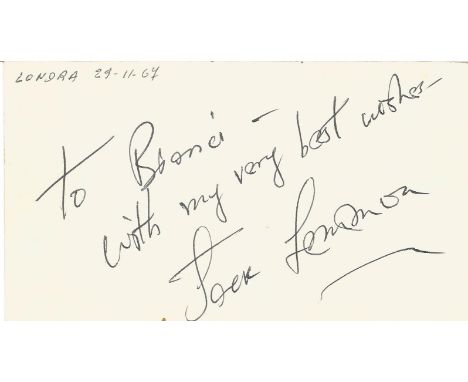 LONDRA 29-11-67
To Bianci -
with my very best wishes -
Jack Lemmon